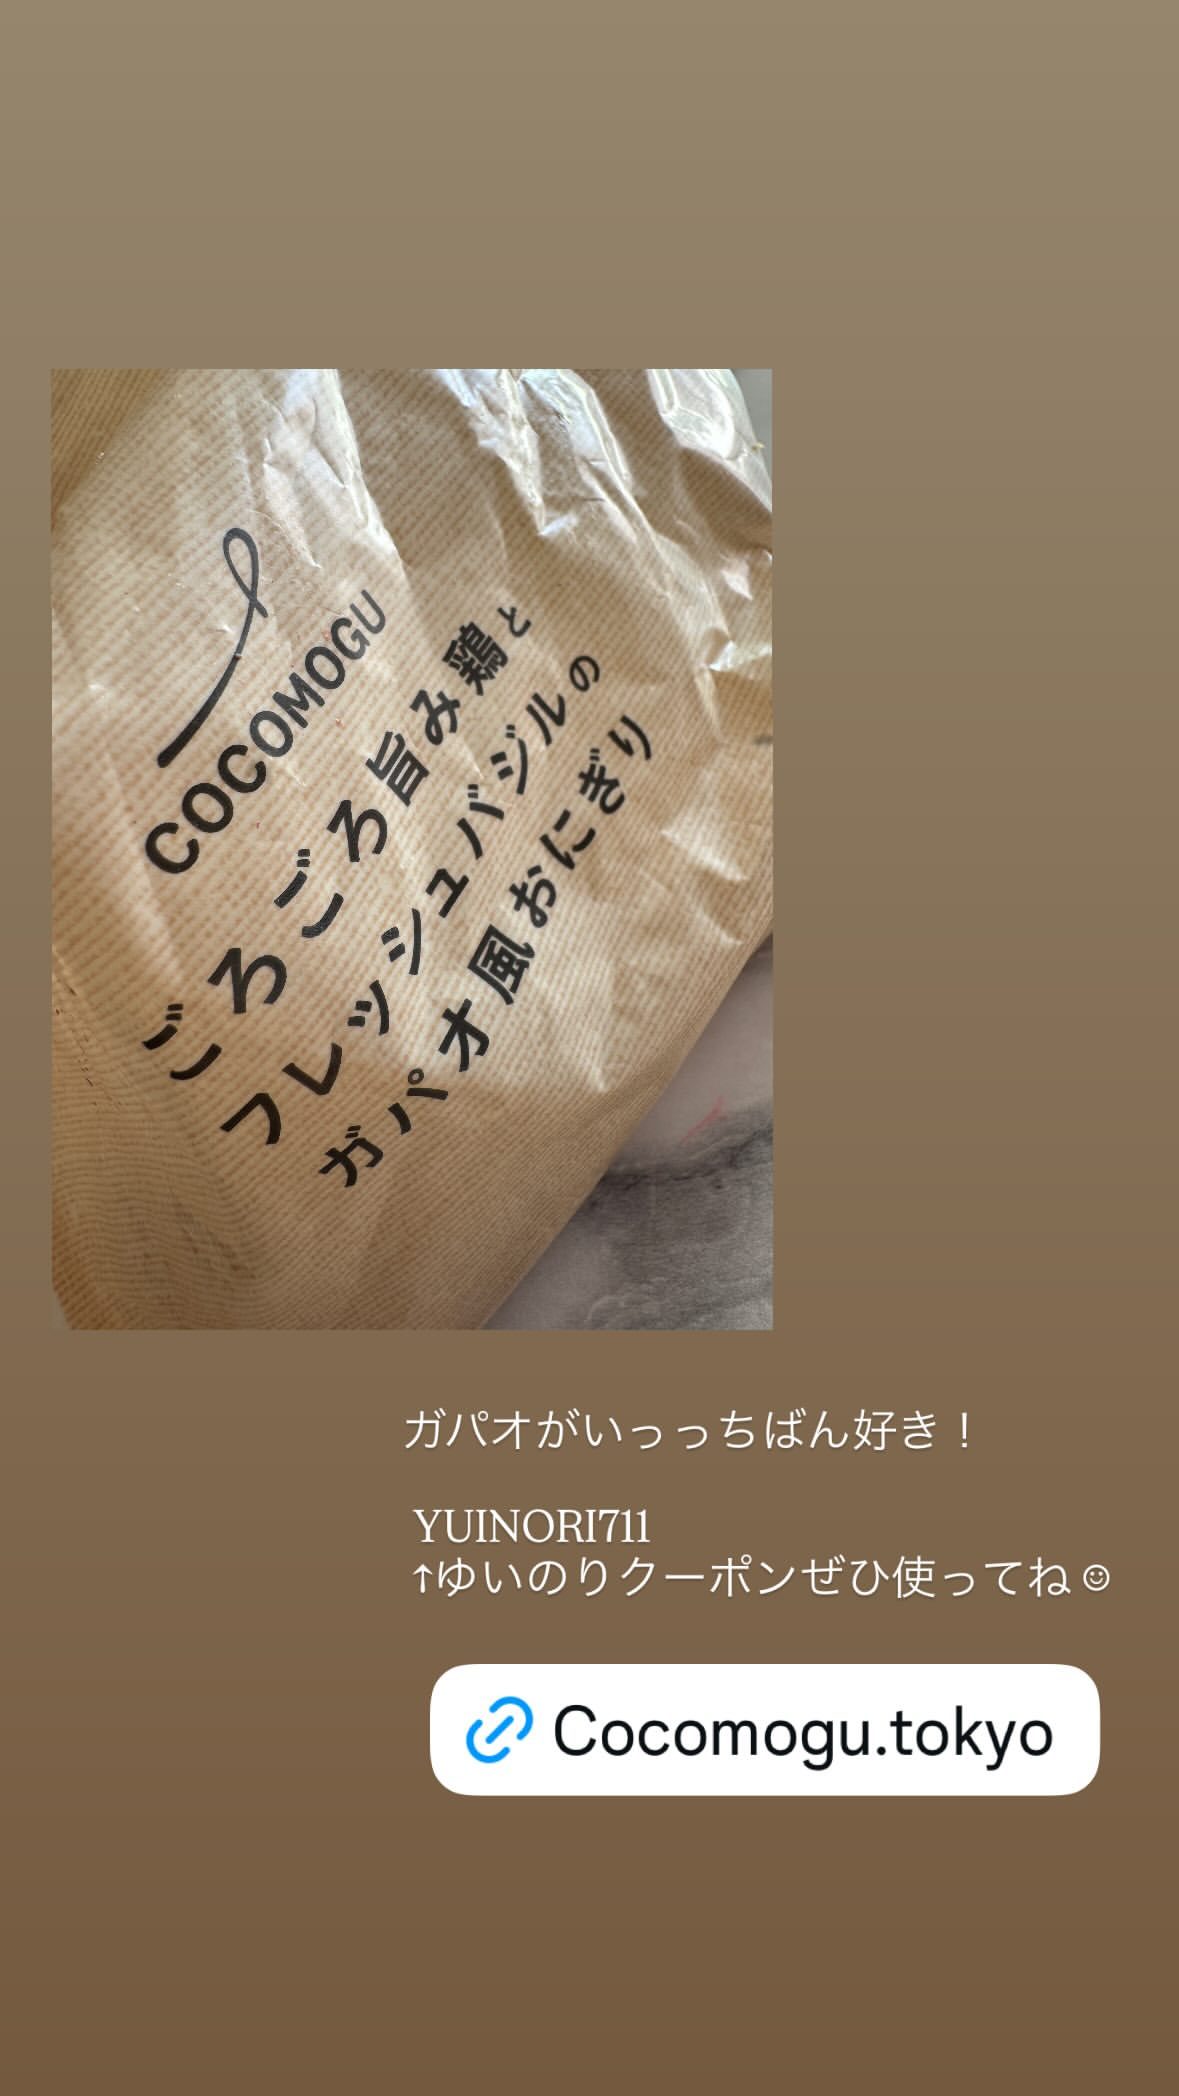 COCOMOGU
ごろごろ旨み鶏と
フレッシュバジルの
ガパオ風おにぎり
ガパオがいっっちばん好き！
YUINORI711
↑ゆいのりクーポンぜひ使ってね☺
Cocomogu.tokyo